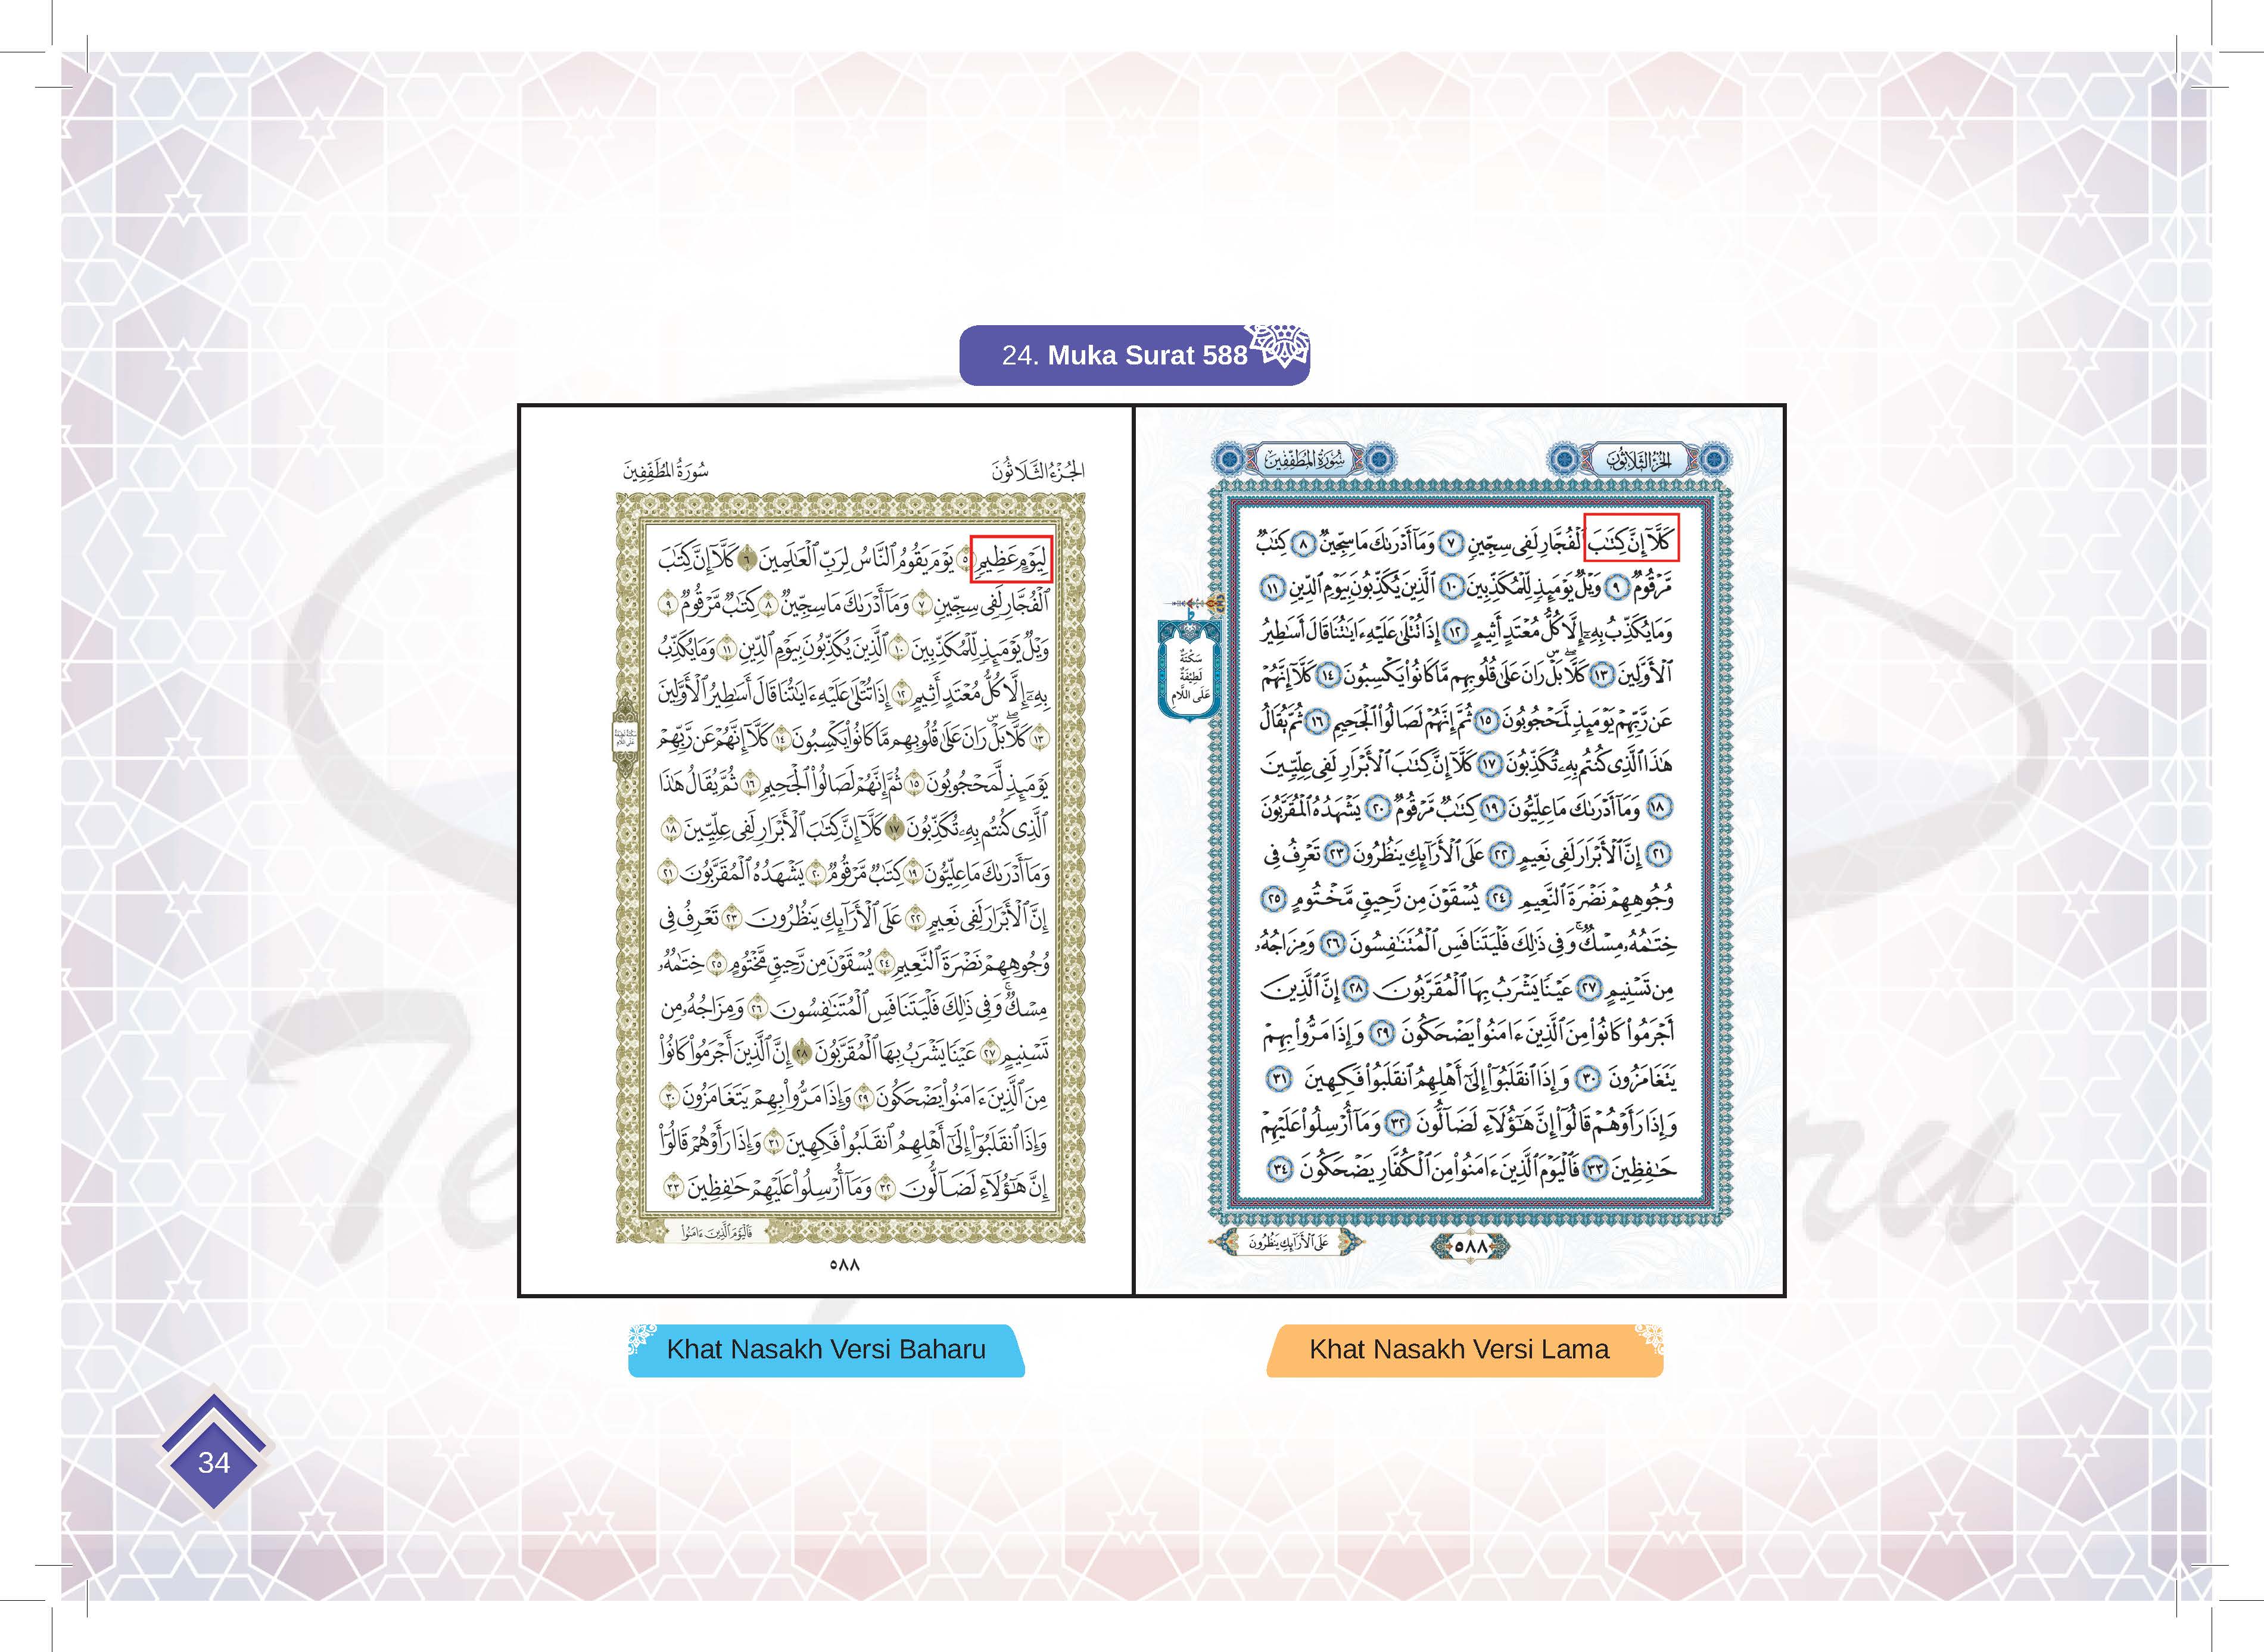 24. Muka Surat 588
الجُزْءُ الثَّلَاثُونَ
سُورَةُ المُطَفِّفِينَ
لِيَوْمٍ عَظِيمٍ ٥ يَوْمَ يَقُومُ ٱلنَّاسُ لِرَبِّ ٱلْعَٰلَمِينَ ٦ كَلَّآ إِنَّ كِتَٰبَ
ٱلْفُجَّارِ لَفِى سِجِّينٍ ٧ وَمَآ أَدْرَىٰكَ مَا سِجِّينٌ ٨ كِتَٰبٌ مَّرْقُومٌ ٩
وَيْلٌ يَوْمَئِذٍ لِّلْمُكَذِّبِينَ ١٠ ٱلَّذِينَ يُكَذِّبُونَ بِيَوْمِ ٱلدِّينِ ١١ وَمَا يُكَذِّبُ
بِهِۦٓ إِلَّا كُلُّ مُعْتَدٍ أَثِيمٍ ١٢ إِذَا تُتْلَىٰ عَلَيْهِ ءَايَٰتُنَا قَالَ أَسَٰطِيرُ ٱلْأَوَّلِينَ
١٣ كَلَّا ۖ بَلْ ۜ رَانَ عَلَىٰ قُلُوبِهِم مَّا كَانُوا۟ يَكْسِبُونَ ١٤ كَلَّآ إِنَّهُمْ عَن رَّبِّهِمْ
يَوْمَئِذٍ لَّمَحْجُوبُونَ ١٥ ثُمَّ إِنَّهُمْ لَصَالُوا۟ ٱلْجَحِيمِ ١٦ ثُمَّ يُقَالُ هَٰذَا
ٱلَّذِى كُنتُم بِهِۦ تُكَذِّبُونَ ١٧ كَلَّآ إِنَّ كِتَٰبَ ٱلْأَبْرَارِ لَفِى عِلِّيِّينَ ١٨
وَمَآ أَدْرَىٰكَ مَا عِلِّيُّونَ ١٩ كِتَٰبٌ مَّرْقُومٌ ٢٠ يَشْهَدُهُ ٱلْمُقَرَّبُونَ ٢١
إِنَّ ٱلْأَبْرَارَ لَفِى نَعِيمٍ ٢٢ عَلَى ٱلْأَرَآئِكِ يَنظُرُونَ ٢٣ تَعْرِفُ فِى
وُجُوهِهِمْ نَضْرَةَ ٱلنَّعِيمِ ٢٤ يُسْقَوْنَ مِن رَّحِيقٍ مَّخْتُومٍ ٢٥ خِتَٰمُهُۥ
مِسْكٌ ۚ وَفِى ذَٰلِكَ فَلْيَتَنَافَسِ ٱلْمُتَنَٰفِسُونَ ٢٦ وَمِزَاجُهُۥ مِن
تَسْنِيمٍ ٢٧ عَيْنًا يَشْرَبُ بِهَا ٱلْمُقَرَّبُونَ ٢٨ إِنَّ ٱلَّذِينَ أَجْرَمُوا۟ كَانُوا۟
مِنَ ٱلَّذِينَ ءَامَنُوا۟ يَضْحَكُونَ ٢٩ وَإِذَا مَرُّوا۟ بِهِمْ يَتَغَامَزُونَ ٣٠
وَإِذَا ٱنقَلَبُوٓا۟ إِلَىٰٓ أَهْلِهِمُ ٱنقَلَبُوا۟ فَكِهِينَ ٣١ وَإِذَا رَأَوْهُمْ قَالُوٓا۟
إِنَّ هَٰٓؤُلَآءِ لَضَآلُّونَ ٣٢ وَمَآ أُرْسِلُوا۟ عَلَيْهِمْ حَٰفِظِينَ ٣٣
فَٱلْيَوْمَ ٱلَّذِينَ ءَامَنُوا۟
٥٨٨
الجُزْءُ الثَّلَاثُونَ
سُورَةُ المُطَفِّفِينَ
كَلَّآ إِنَّ كِتَٰبَ ٱلْفُجَّارِ لَفِى سِجِّينٍ ٧ وَمَآ أَدْرَىٰكَ مَا سِجِّينٌ ٨ كِتَٰبٌ
مَّرْقُومٌ ٩ وَيْلٌ يَوْمَئِذٍ لِّلْمُكَذِّبِينَ ١٠ ٱلَّذِينَ يُكَذِّبُونَ بِيَوْمِ ٱلدِّينِ ١١
وَمَا يُكَذِّبُ بِهِۦٓ إِلَّا كُلُّ مُعْتَدٍ أَثِيمٍ ١٢ إِذَا تُتْلَىٰ عَلَيْهِ ءَايَٰتُنَا قَالَ أَسَٰطِيرُ
ٱلْأَوَّلِينَ ١٣ كَلَّا ۖ بَلْ ۜ رَانَ عَلَىٰ قُلُوبِهِم مَّا كَانُوا۟ يَكْسِبُونَ ١٤ كَلَّآ إِنَّهُمْ
عَن رَّبِّهِمْ يَوْمَئِذٍ لَّمَحْجُوبُونَ ١٥ ثُمَّ إِنَّهُمْ لَصَالُوا۟ ٱلْجَحِيمِ ١٦ ثُمَّ يُقَالُ
هَٰذَا ٱلَّذِى كُنتُم بِهِۦ تُكَذِّبُونَ ١٧ كَلَّآ إِنَّ كِتَٰبَ ٱلْأَبْرَارِ لَفِى عِلِّيِّينَ
١٨ وَمَآ أَدْرَىٰكَ مَا عِلِّيُّونَ ١٩ كِتَٰبٌ مَّرْقُومٌ ٢٠ يَشْهَدُهُ ٱلْمُقَرَّبُونَ
٢١ إِنَّ ٱلْأَبْرَارَ لَفِى نَعِيمٍ ٢٢ عَلَى ٱلْأَرَآئِكِ يَنظُرُونَ ٢٣ تَعْرِفُ فِى
وُجُوهِهِمْ نَضْرَةَ ٱلنَّعِيمِ ٢٤ يُسْقَوْنَ مِن رَّحِيقٍ مَّخْتُومٍ ٢٥
خِتَٰمُهُۥ مِسْكٌ ۚ وَفِى ذَٰلِكَ فَلْيَتَنَافَسِ ٱلْمُتَنَٰفِسُونَ ٢٦ وَمِزَاجُهُۥ
مِن تَسْنِيمٍ ٢٧ عَيْنًا يَشْرَبُ بِهَا ٱلْمُقَرَّبُونَ ٢٨ إِنَّ ٱلَّذِينَ
أَجْرَمُوا۟ كَانُوا۟ مِنَ ٱلَّذِينَ ءَامَنُوا۟ يَضْحَكُونَ ٢٩ وَإِذَا مَرُّوا۟ بِهِمْ
يَتَغَامَزُونَ ٣٠ وَإِذَا ٱنقَلَبُوٓا۟ إِلَىٰٓ أَهْلِهِمُ ٱنقَلَبُوا۟ فَكِهِينَ ٣١
وَإِذَا رَأَوْهُمْ قَالُوٓا۟ إِنَّ هَٰٓؤُلَآءِ لَضَآلُّونَ ٣٢ وَمَآ أُرْسِلُوا۟ عَلَيْهِمْ
حَٰفِظِينَ ٣٣ فَٱلْيَوْمَ ٱلَّذِينَ ءَامَنُوا۟ مِنَ ٱلْكُفَّارِ يَضْحَكُونَ ٣٤
سَكْتَةٌ
لَطِيْفَةٌ
عَلَى اللَّامِ
عَلَى ٱلْأَرَآئِكِ يَنظُرُونَ
٥٨٨
Khat Nasakh Versi Baharu
Khat Nasakh Versi Lama
34